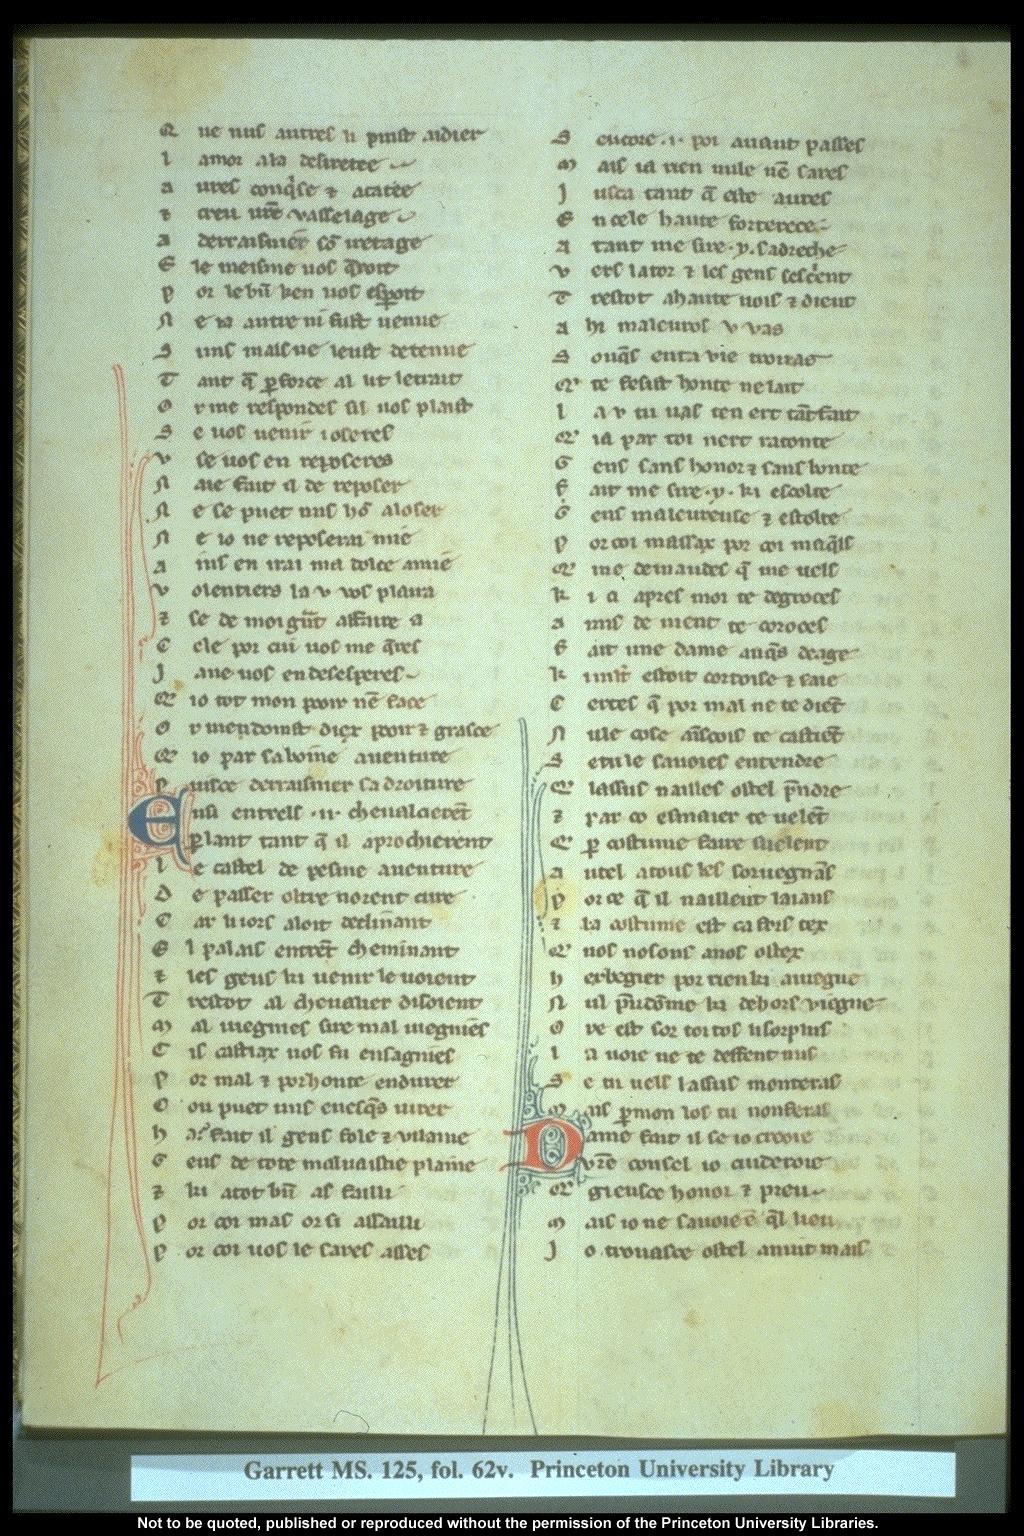 Q ue nus autres li puist aidier
l amor a la desiretee
a ures conq̓se ⁊ acatee
⁊ creu ur̄e vasselage
a derraisnier sō iretage
E le meisme uos q̄roit
p or le bn̄ ken uos esꝑoit
N e ia autre ni fust uenue
S uns mals ne leust detenue
T ant q̄ ꝑ force al lit letrait
O r me respondes sil uos plaist
S e uos uenir i oseres
v se uos en reposeres
N aie fait il de reposer
N e se puet nus hō aloser
N e io ne reposerai mie
a ins en irai ma dolce amie
v olentiers la v vos plaira
⁊ se de moi affaire a
C ele por cui uos me q̄res
J ane uos en deseperes
Q io tot mon pooir nē face
O r men doinst diex pooir ⁊ grasce
Q io par sa boine auenture
P uisce derraisnier sa droiture
E nsi entrels .ii. cheualcierēt
ꝑlant tant q̄ il aprochierent
l e castel de pesme auenture
D e passer oltre norent cure
C ar li iors aloit declinant
E l palais entrēt cheminant
⁊ les gens ki uenir le uoient
T restot al cheualier disoient
M al uiegnies sire mal uiegnies
C is castiax uos fu ensagnies
P or mal ⁊ por honte endurer
C ou puet uns euesq̄s iurer
h a fait il gens fole ⁊ vilaine
G ens de tote maluaistie plaine
⁊ ki a tot bn̄ as failli
P or coi mas or si assailli
P or coi uos le sares asses
S encore .i. poi auant passes
M ais ia rien nule nē sares
J usca tant q̄ este aures
E n cele haute forterece
A tant me sire .y. sadreche
v ers la tor ⁊ les gens sescrient
T restot a haute uois ⁊ dient
a hi maleuros v vas
S onq̄s en ta vie trouas
Q te fesist honte ne lait
l a v tu uas ten ert tāt fait
Q ia par toi nert raconte
G ens sans honor ⁊ sans bonte
f ait me sire .y. ki escolte
G ens maleureuse ⁊ estolte
p or coi massax por coi maq̄is
Q me demandes q̄ me uels
k i a apres moi te degroces
a mis de nient te coroces
f ait une dame auq̄s deage
k mlt̄ estoit cortoise ⁊ saie
C ertes q̄ por mal ne te diēt
N ule cose ains̄cois te castiēt
S e tu le sauoies entendre
Q lassus nailles ostel p̄ndre
⁊ par co esmaier te uelēt
Q ꝑ costume faire suelent
a utel a tous les soruegnās
p or ce q̄ il naillent laians
⁊ la costume est ca fors tex
Q nos nosons a nos ostex
h erbegier por rien ki auiegne
N ul p̄udōme ki de hors viegne
O re est sor toi tos li sorplus
l a uoie ne te deffent nus
S e tu uels lassus monteras
M ais ꝑ mon los tu non feras
D ame fait il se io creoie
vr̄e consel io cuideroie
Q gieusce honor ⁊ preu
M ais io ne sauoie ē q̄l lieu
J o trouasce ostel anuit mais
Garrett MS. 125, fol. 62v. Princeton University Library
Not to be quoted, published or reproduced without the permission of the Princeton University Libraries.